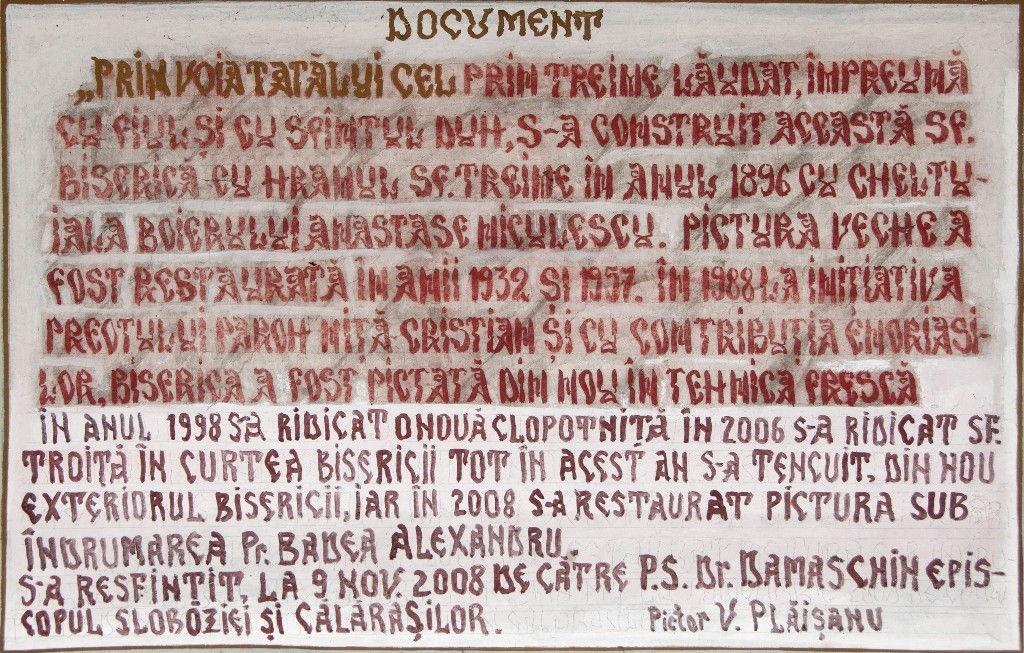 DOCUMENT
„PRIN VOIA TATĂLUI CEL PRIN TREIME LĂUDAT, ÎMPREUNĂ
CU FIUL ȘI CU SFÎNTUL DUH, S-A CONSTRUIT ACEASTĂ SF.
BISERICĂ CU HRAMUL SF. TREIME ÎN ANUL 1896 CU CHELTU-
IALA BOIERULUI ANASTASE NICULESCU. PICTURA VECHE A
FOST RESTAURATĂ ÎN ANII 1932 ȘI 1957. ÎN 1988 LA INITIATIVA
PREOTULUI PAROH NIȚĂ CRISTIAN ȘI CU CONTRIBUTIA ENORIASI-
LOR, BISERICA A FOST PICTATĂ DIN NOU ÎN TEHNICA FRESCĂ
ÎN ANUL 1998 S-A RIDICAT O NOUĂ CLOPOTNIȚĂ ÎN 2006 S-A RIDICAT SF.
TROIȚĂ ÎN CURTEA BISERICII TOT ÎN ACEST AN S-A TENCUIT, DIN NOU
EXTERIORUL BISERICII, IAR ÎN 2008 S-A RESTAURAT PICTURA SUB
ÎNDRUMAREA Pr. BADEA ALEXANDRU.
S-A RESFINTIT, LA 9 NOV. 2008 DE CĂTRE P.S. Dr. DAMASCHIN EPIS-
COPUL SLOBOZIEI ȘI CĂLĂRAȘILOR. Pictor V. PLĂIȘANU